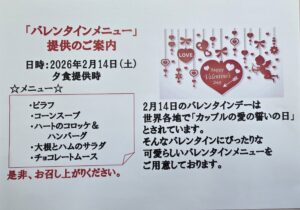 「バレンタインメニュー」
提供のご案内
日時:2026年2月14日(土)
夕食提供時
☆メニュー☆
・ピラフ
・コーンスープ
・ハートのコロッケ&
ハンバーグ
・大根とハムのサラダ
・チョコレートムース
是非、お召し上がりください。
LOVE
Happy
Valentine's
Day
2月14日のバレンタインデーは
世界各地で「カップルの愛の誓いの日」
とされています。
そんなバレンタインにぴったりな
可愛らしいバレンタインメニューを
ご用意しております。